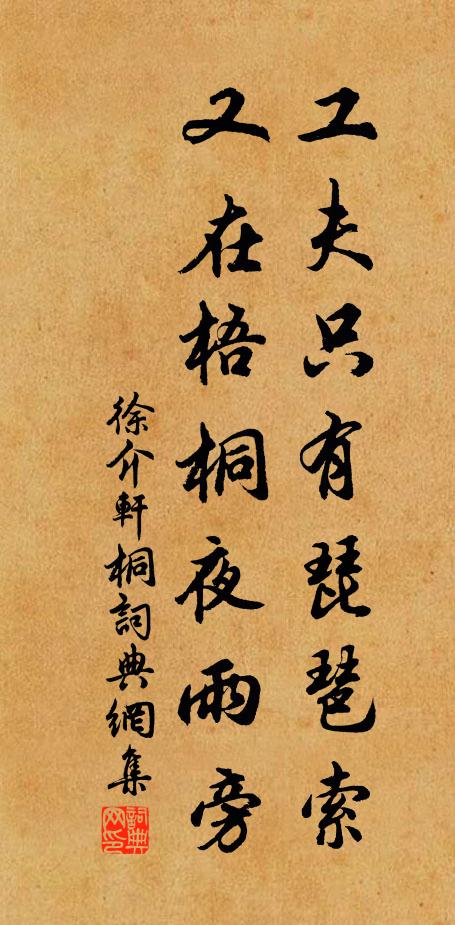 工夫只有琵琶索
又在梧桐夜雨旁
徐介軒桐詞典網集
詞典网印